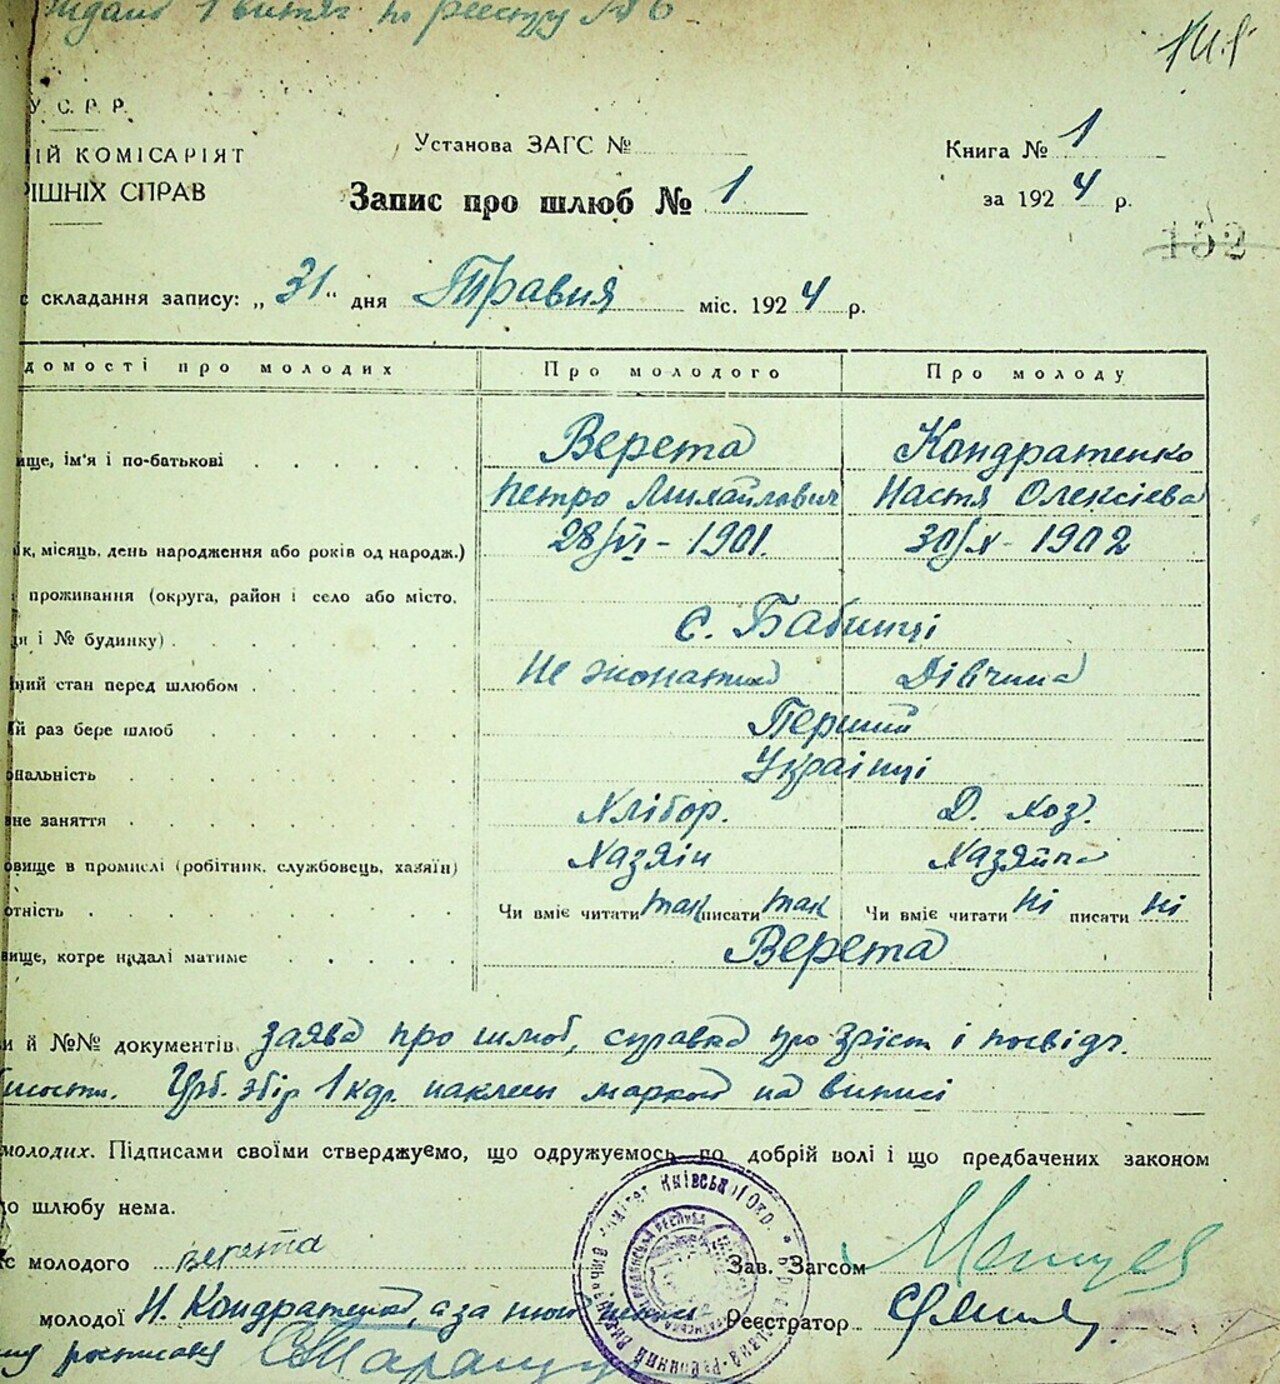 1 витяг по реєстру № 6
У. С. Р. Р.
ІЙ КОМІСАРІЯТ
РІШНІХ СПРАВ
Установа ЗАГС №
Книга № 1
Запис про шлюб № 1
за 1924 р.
152
с складання запису: „31“ дня Травня міс. 1924 р.
домості про молодих
Про молодого
Про молоду
ище, ім'я і по-батькові
Верета
Кондратенко
Петро Михайлович
Настя Олексієва
ік, місяць, день народження або років од народж.)
28/VI - 1901.
30/X - 1902
проживання (округа, район і село або місто,
ця і № будинку)
с. Бабинці
ний стан перед шлюбом
Не жонатий
Дівчина
ий раз бере шлюб
Перший
ональність
Українці
вне заняття
Хлібор.
Д. хоз.
овище в промислі (робітник, службовець, хазяїн)
Хазяін
Хазяйка
отність
Чи вміє читати так писати так
Чи вміє читати ні писати ні
вище, котре надалі матиме
Верета
и й №№ документів заява про шлюб, справка про зріст і посвідч.
збір 1 кар. наклеєн маркой на виписі
молодих. Підписами своїми стверджуємо, що одружуємось по добрій волі і що предбачених законом
о шлюбу нема.
с молодого верета
Зав. Загсом
молодої Н. Кондратенко, а за
Реєстратор
росписався